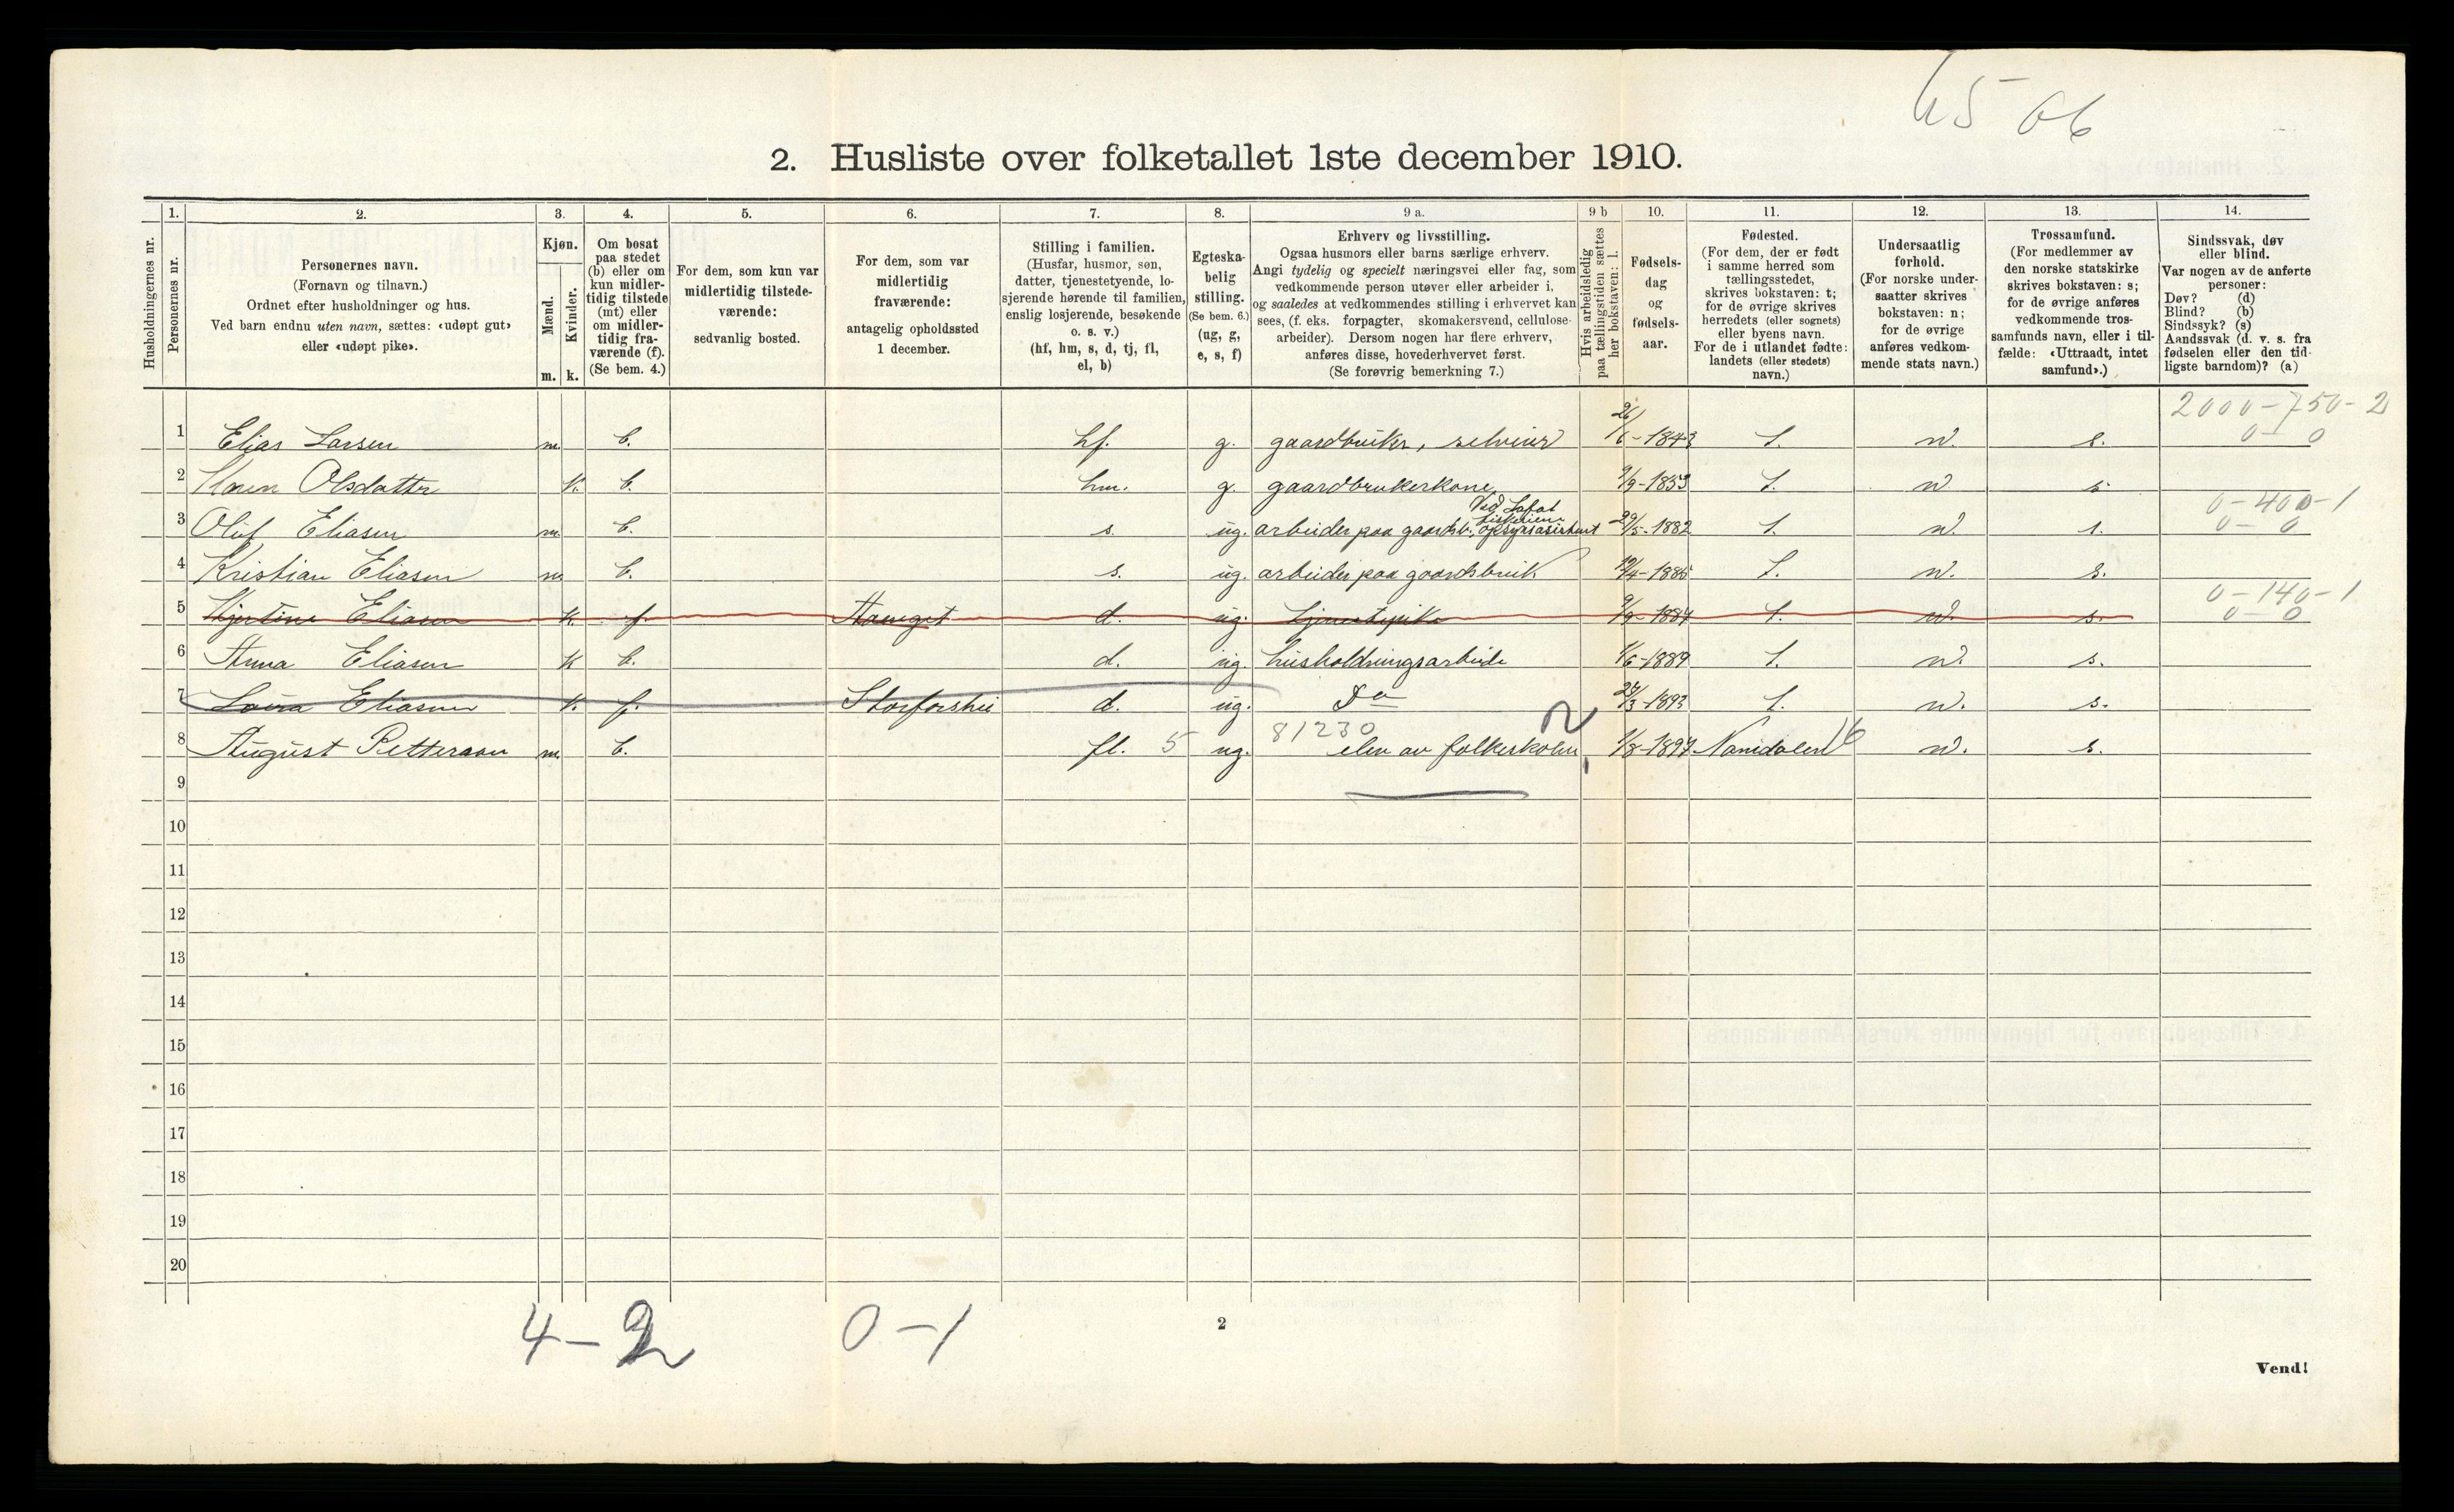 65 06
2. Husliste over folketallet 1ste december 1910.
Husholdningernes nr.
1. Personernes nr.
2. Personernes navn.
(Fornavn og tilnavn.)
Ordnet efter husholdninger og hus.
Ved barn endnu uten navn, sættes: «udøpt gut»
eller «udøpt pike».
3. Kjøn.
Mænd. Kvinder.
m. k.
4. Om bosat
paa stedet
(b) eller om
kun midler-
tidig tilstede
(mt) eller
om midler-
tidig fra-
værende (f).
(Se bem. 4.)
5. For dem, som kun var
midlertidig tilstede-
værende:
sedvanlig bosted.
6. For dem, som var
midlertidig
fraværende:
antagelig opholdssted
1 december.
7. Stilling i familien.
(Husfar, husmor, søn,
datter, tjenestetyende, lo-
sjerende hørende til familien,
enslig losjerende, besøkende
o. s. v.)
(hf, hm, s, d, tj, fl,
el, b)
8. Egteska-
belig
stilling.
(Se bem. 6.)
(ug, g,
e, s, f)
9 a. Erhverv og livsstilling.
Ogsaa husmors eller barns særlige erhverv.
Angi tydelig og specielt næringsvei eller fag, som
vedkommende person utøver eller arbeider i,
og saaledes at vedkommendes stilling i erhvervet kan
sees, (f. eks. forpagter, skomakersvend, cellulose-
arbeider). Dersom nogen har flere erhverv,
anføres disse, hovederhvervet først.
(Se forøvrig bemerkning 7.)
9 b Hvis arbeidsledig
paa tællingstiden sættes
her bokstaven: l.
10. Fødsels-
dag
og
fødsels-
aar.
11. Fødested.
(For dem, der er født
i samme herred som
tællingsstedet,
skrives bokstaven: t;
for de øvrige skrives
herredets (eller sognets)
eller byens navn.
For de i utlandet fødte:
landets (eller stedets)
navn.)
12. Undersaatlig
forhold.
(For norske under-
saatter skrives
bokstaven: n;
for de øvrige
anføres vedkom-
mende stats navn.)
13. Trossamfund.
(For medlemmer av
den norske statskirke
skrives bokstaven: s;
for de øvrige anføres
vedkommende tros-
samfunds navn, eller i til-
fælde: «Uttraadt, intet
samfund».)
14. Sindssvak, døv
eller blind.
Var nogen av de anførte
personer:
Døv? (d)
Blind? (b)
Sindssyk? (s)
Aandssvak (d. v. s. fra
fødselen eller den tid-
ligste barndom)? (a)
2000-750-2
1 Elias Larsen m. b. hf. g. gaardbruker, selveier 26/6-1843 t. n. s. 0-0
2 Maren Olsdatter k. b. hm. g. gaardbrukerkone 9/9-1853 t. n. s.
Ved Lofot fiskeriene 0-400-1
3 Oluf Eliasen m. b. s. ug. arbeider paa gaardsb. opsynsasistent 29/5-1882 t. n. s. 0-0
4 Kristian Eliasen m. b. s. ug. arbeider paa gaardsbruk 12/4-1885 t. n. s.
0-140-1
5 Kjerstine Eliasen k. f. Hauget d. ug. tjenestepike 9/9-1887 t. n. s. 0-0
6 Anna Eliasen k b. d. ug. husholdningsarbeide 1/6-1889 t. n. s.
7 Laura Eliasen k. f. Storforshei d. ug. Do 24/3-1893 t. n. s.
81230
8 August Petterson m. b. fl. 5 ug. elev av folkeskolen 1/8-1897 Namdalen 16 n. s.
9
10
11
12
13
14
15
16
17
18
19
20
4-2 0-1
2
Vend!